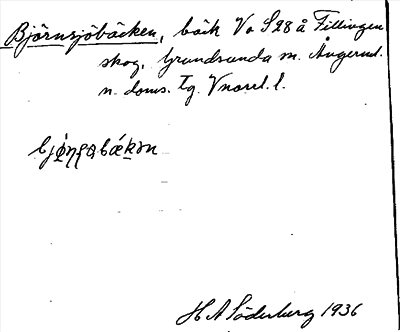 Björnsjöbäcken, bäck V o S 28 å Fillingen
skog, Grundsunda sn. Ångerml.
n. doms. Tg. Vnorrl. l.
H A Söderberg 1936